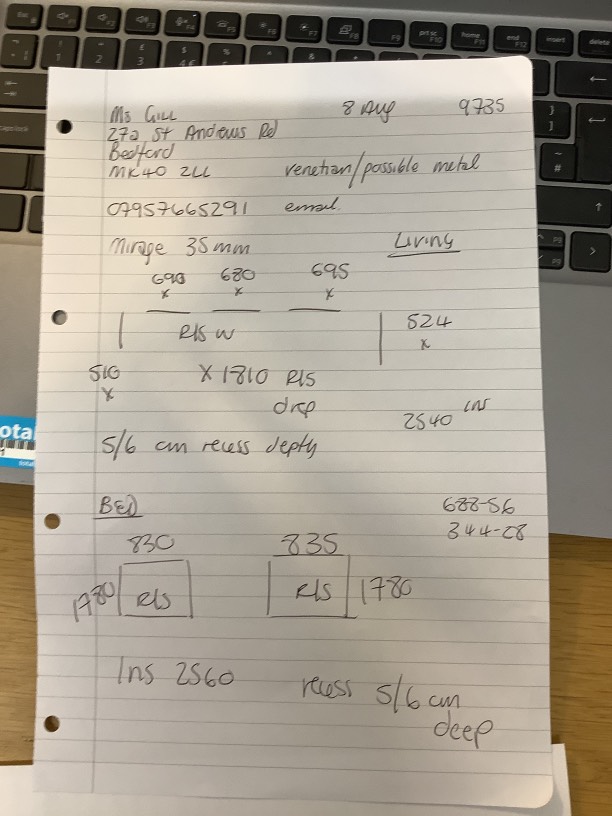 Ms Gill 8 Aug 9735
27a St Andrews Rd
Bedford
MK40 2LL venetian/possible metal
07957665291 email.
Mirage 35mm Living
690 680 695
x x x
R/S W 524
x
510 X 1810 R/S
x
drop 2540 ins
5/6 cm recess depth
BED 688-56
344-28
830 835
1780 R/S R/S 1780
Ins 2560 recess 5/6 cm
deep